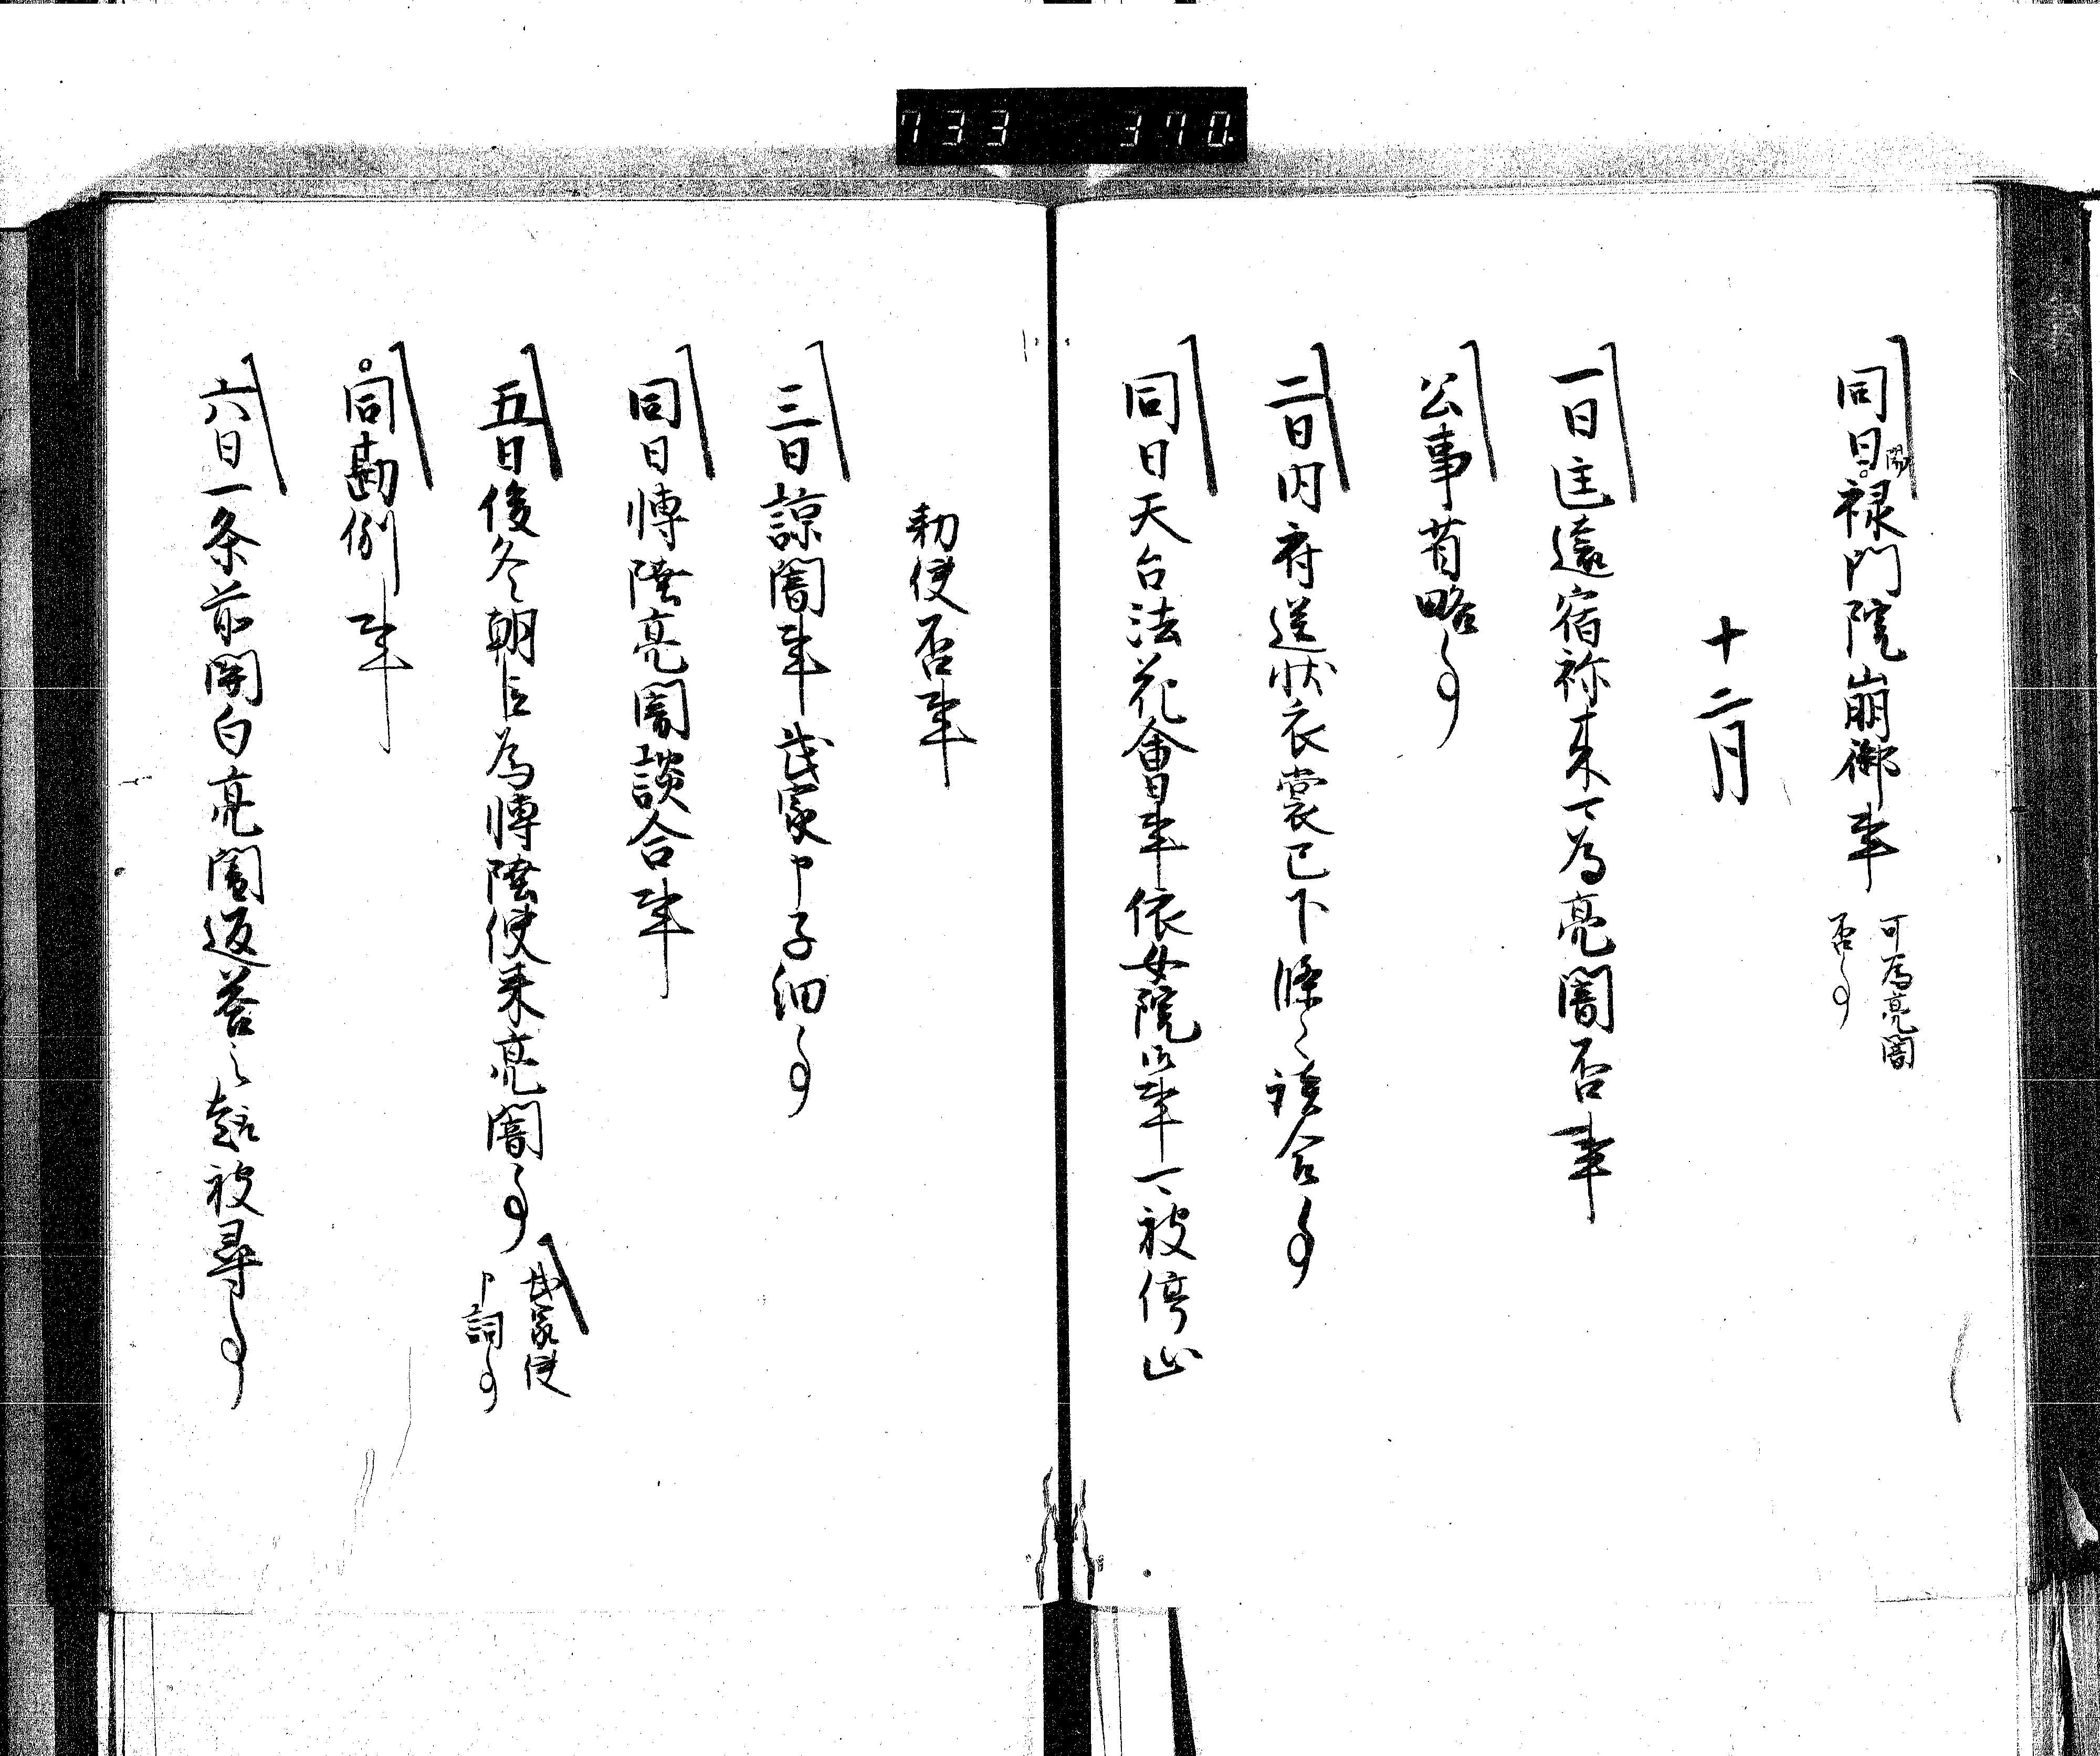 733 370
同日聞禄門院崩御事 可為亮闇
否事
十二月
一日匡遠宿祢来可為亮闇否事
公事省略事
二日内府送状衣裳已下條々談合事
同日天台法花會事依女院御事可被停止
勅使否事
三日諒闇事武家申子細事
同日博陸亮闇談合事
五日俊冬朝臣為博陸使来亮闇事 武家使
申詞事
同勘例事
六日一条前関白亮闇返答之趣被尋事